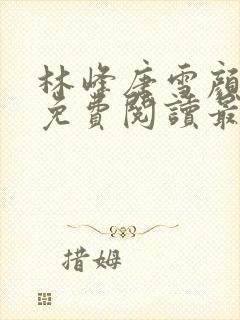 林峰唐雪顏
免費閱讀最
措姆